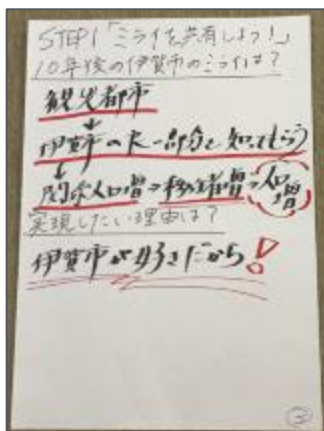 STEP1「ミライを共有しよう!」
10年後の伊賀市のミライは?
観光都市
↓
伊賀市の大一部分を知ってもらう
↓
関係人口増→移住者増→人口増
実現したい理由は?
伊賀市が好きだから!
③